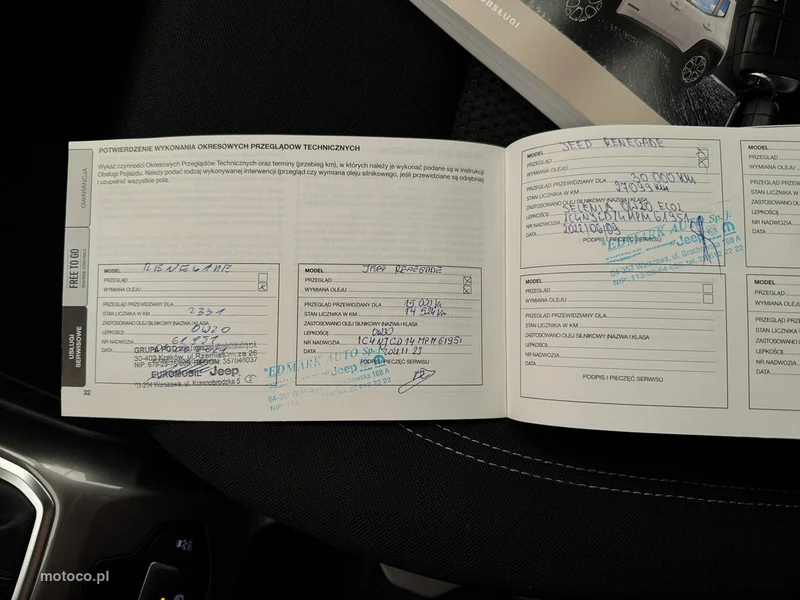 OBSŁUGI
POTWIERDZENIE WYKONANIA OKRESOWYCH PRZEGLĄDÓW TECHNICZNYCH
Wykaz czynności Okresowych Przeglądów Technicznych oraz terminy (przebieg km), w których należy je wykonać podane są w Instrukcji
Obsługi Pojazdu. Należy podać rodzaj wykonywanej interwencji (przegląd czy wymiana oleju silnikowego, jeśli przewidziana są odrębnie)
i uzupełnić wszystkie pola.
GWARANCJA
FREE TO GO
USŁUGI SERWISOWE
MODEL RENEGADE
PRZEGLĄD
WYMIANA OLEJU x
PRZEGLĄD PRZEWIDZIANY DLA
STAN LICZNIKA W KM 2331
ZASTOSOWANO OLEJ SILNIKOWY (NAZWA I KLASA
LEPKOŚCI) 0W20
NR NADWOZIA 61951
30-403 Kraków, ul. Rzemieślnicza 26
EUROMOBIL Jeep
03-214 Warszawa, ul. Krasnobrodzka 5
32
MODEL JEEP RENEGADE
PRZEGLĄD x
WYMIANA OLEJU x
PRZEGLĄD PRZEWIDZIANY DLA 15 000 km
STAN LICZNIKA W KM 14 524 km
ZASTOSOWANO OLEJ SILNIKOWY (NAZWA I KLASA
LEPKOŚCI)
NR NADWOZIA 1C4NJCD14MPM61951
DATA 2021 11 23
PODPIS I PIECZĘĆ SERWISU
EDMARK AUTO Sp. j.
Jeep
MODEL JEEP RENEGADE
PRZEGLĄD x
WYMIANA OLEJU x
PRZEGLĄD PRZEWIDZIANY DLA 30 000 km
STAN LICZNIKA W KM 27099 km
ZASTOSOWANO OLEJ SILNIKOWY (NAZWA I KLASA
LEPKOŚCI) SELENIA 0W20 ECO2
NR NADWOZIA 1C4NJCD14MPM61951
DATA 2022/06/09
PODPIS I PIECZĘĆ SERWISU
EDMARK AUTO Sp. j.
Jeep
04-357 Warszawa, ul. Grochowska 168 A
MODEL
PRZEGLĄD
WYMIANA OLEJU
PRZEGLĄD PRZEWIDZIANY DLA
STAN LICZNIKA W KM
ZASTOSOWANO OLEJ SILNIKOWY (NAZWA I KLASA
LEPKOŚCI)
NR NADWOZIA
DATA
PODPIS I PIECZĘĆ SERWISU
MODEL
PRZEGLĄD
WYMIANA OLEJU
PRZEGLĄD
STAN LICZ
ZASTOSOW
LEPKOŚCI)
NR NADWO
DATA
MODEL
PRZEGLĄD
WYMIANA O
PRZEGLĄD
STAN LICZ
ZASTOSOW
LEPKOŚCI)
NR NADWO
DATA
motoco.pl